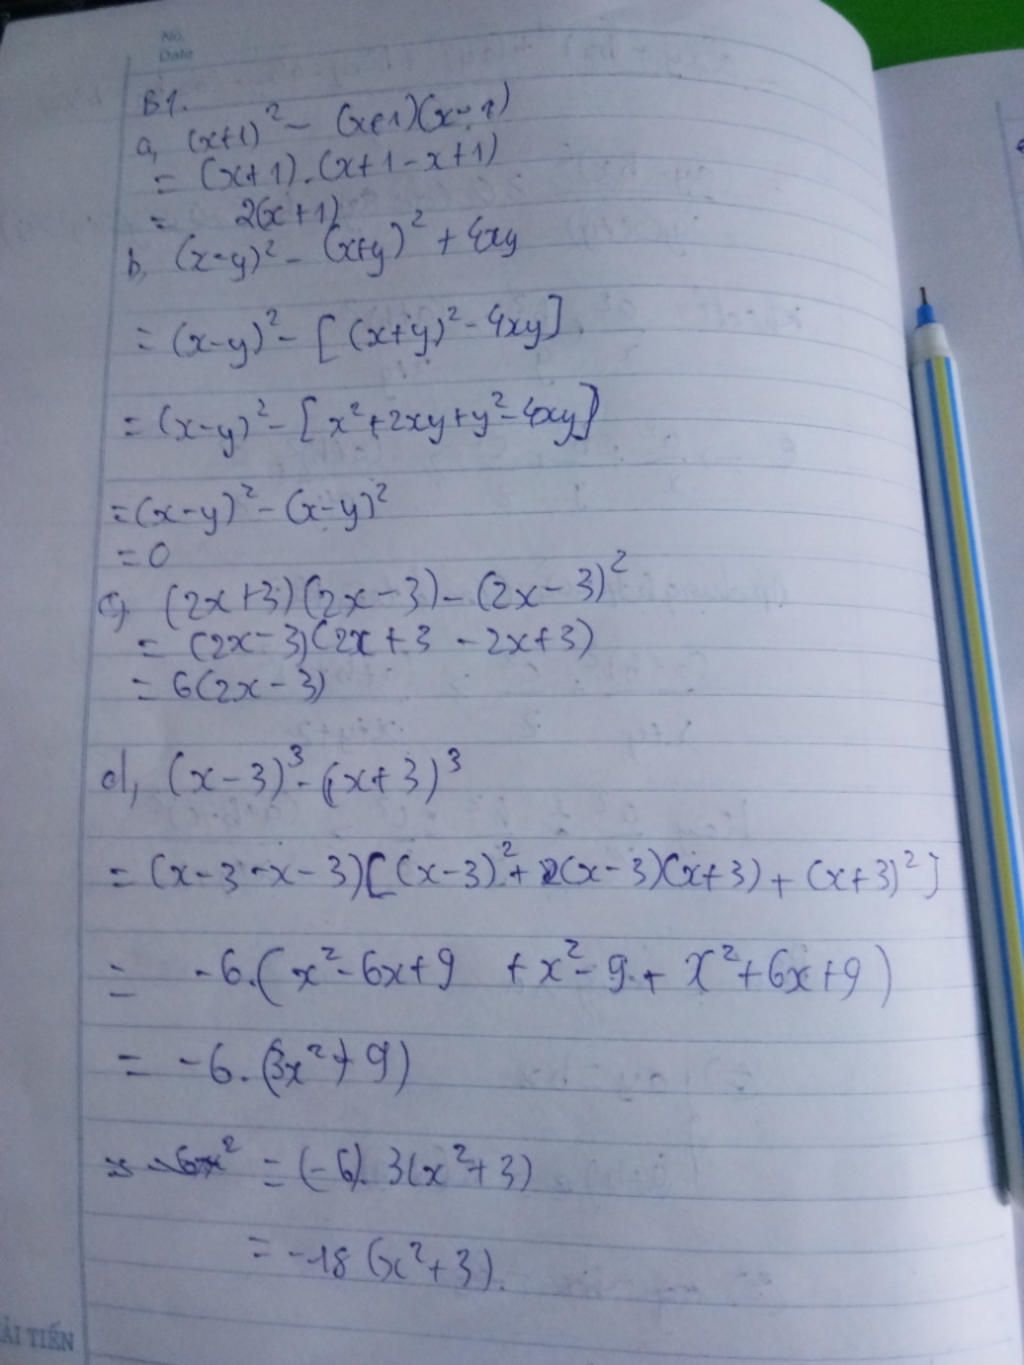 No.
Date
B1.
a, (x+1)² - (x+1)(x-1)
= (x+1).(x+1-x+1)
= 2(x+1)
b, (x-y)² - (x+y)² + 4xy
= (x-y)² - [(x+y)² - 4xy]
= (x-y)² - [x²+2xy+y²-4xy]
= (x-y)² - (x-y)²
= 0
c, (2x+3)(2x-3) - (2x-3)²
= (2x-3)(2x+3 - 2x+3)
= 6(2x-3)
d, (x-3)³ - (x+3)³
= (x-3-x-3)[(x-3)² + (x-3)(x+3) + (x+3)²]
= -6.(x²-6x+9 + x²-9 + x²+6x+9)
= -6.(3x²+9)
= (-6). 3(x²+3)
= -18(x²+3).
ẢI TIẾN